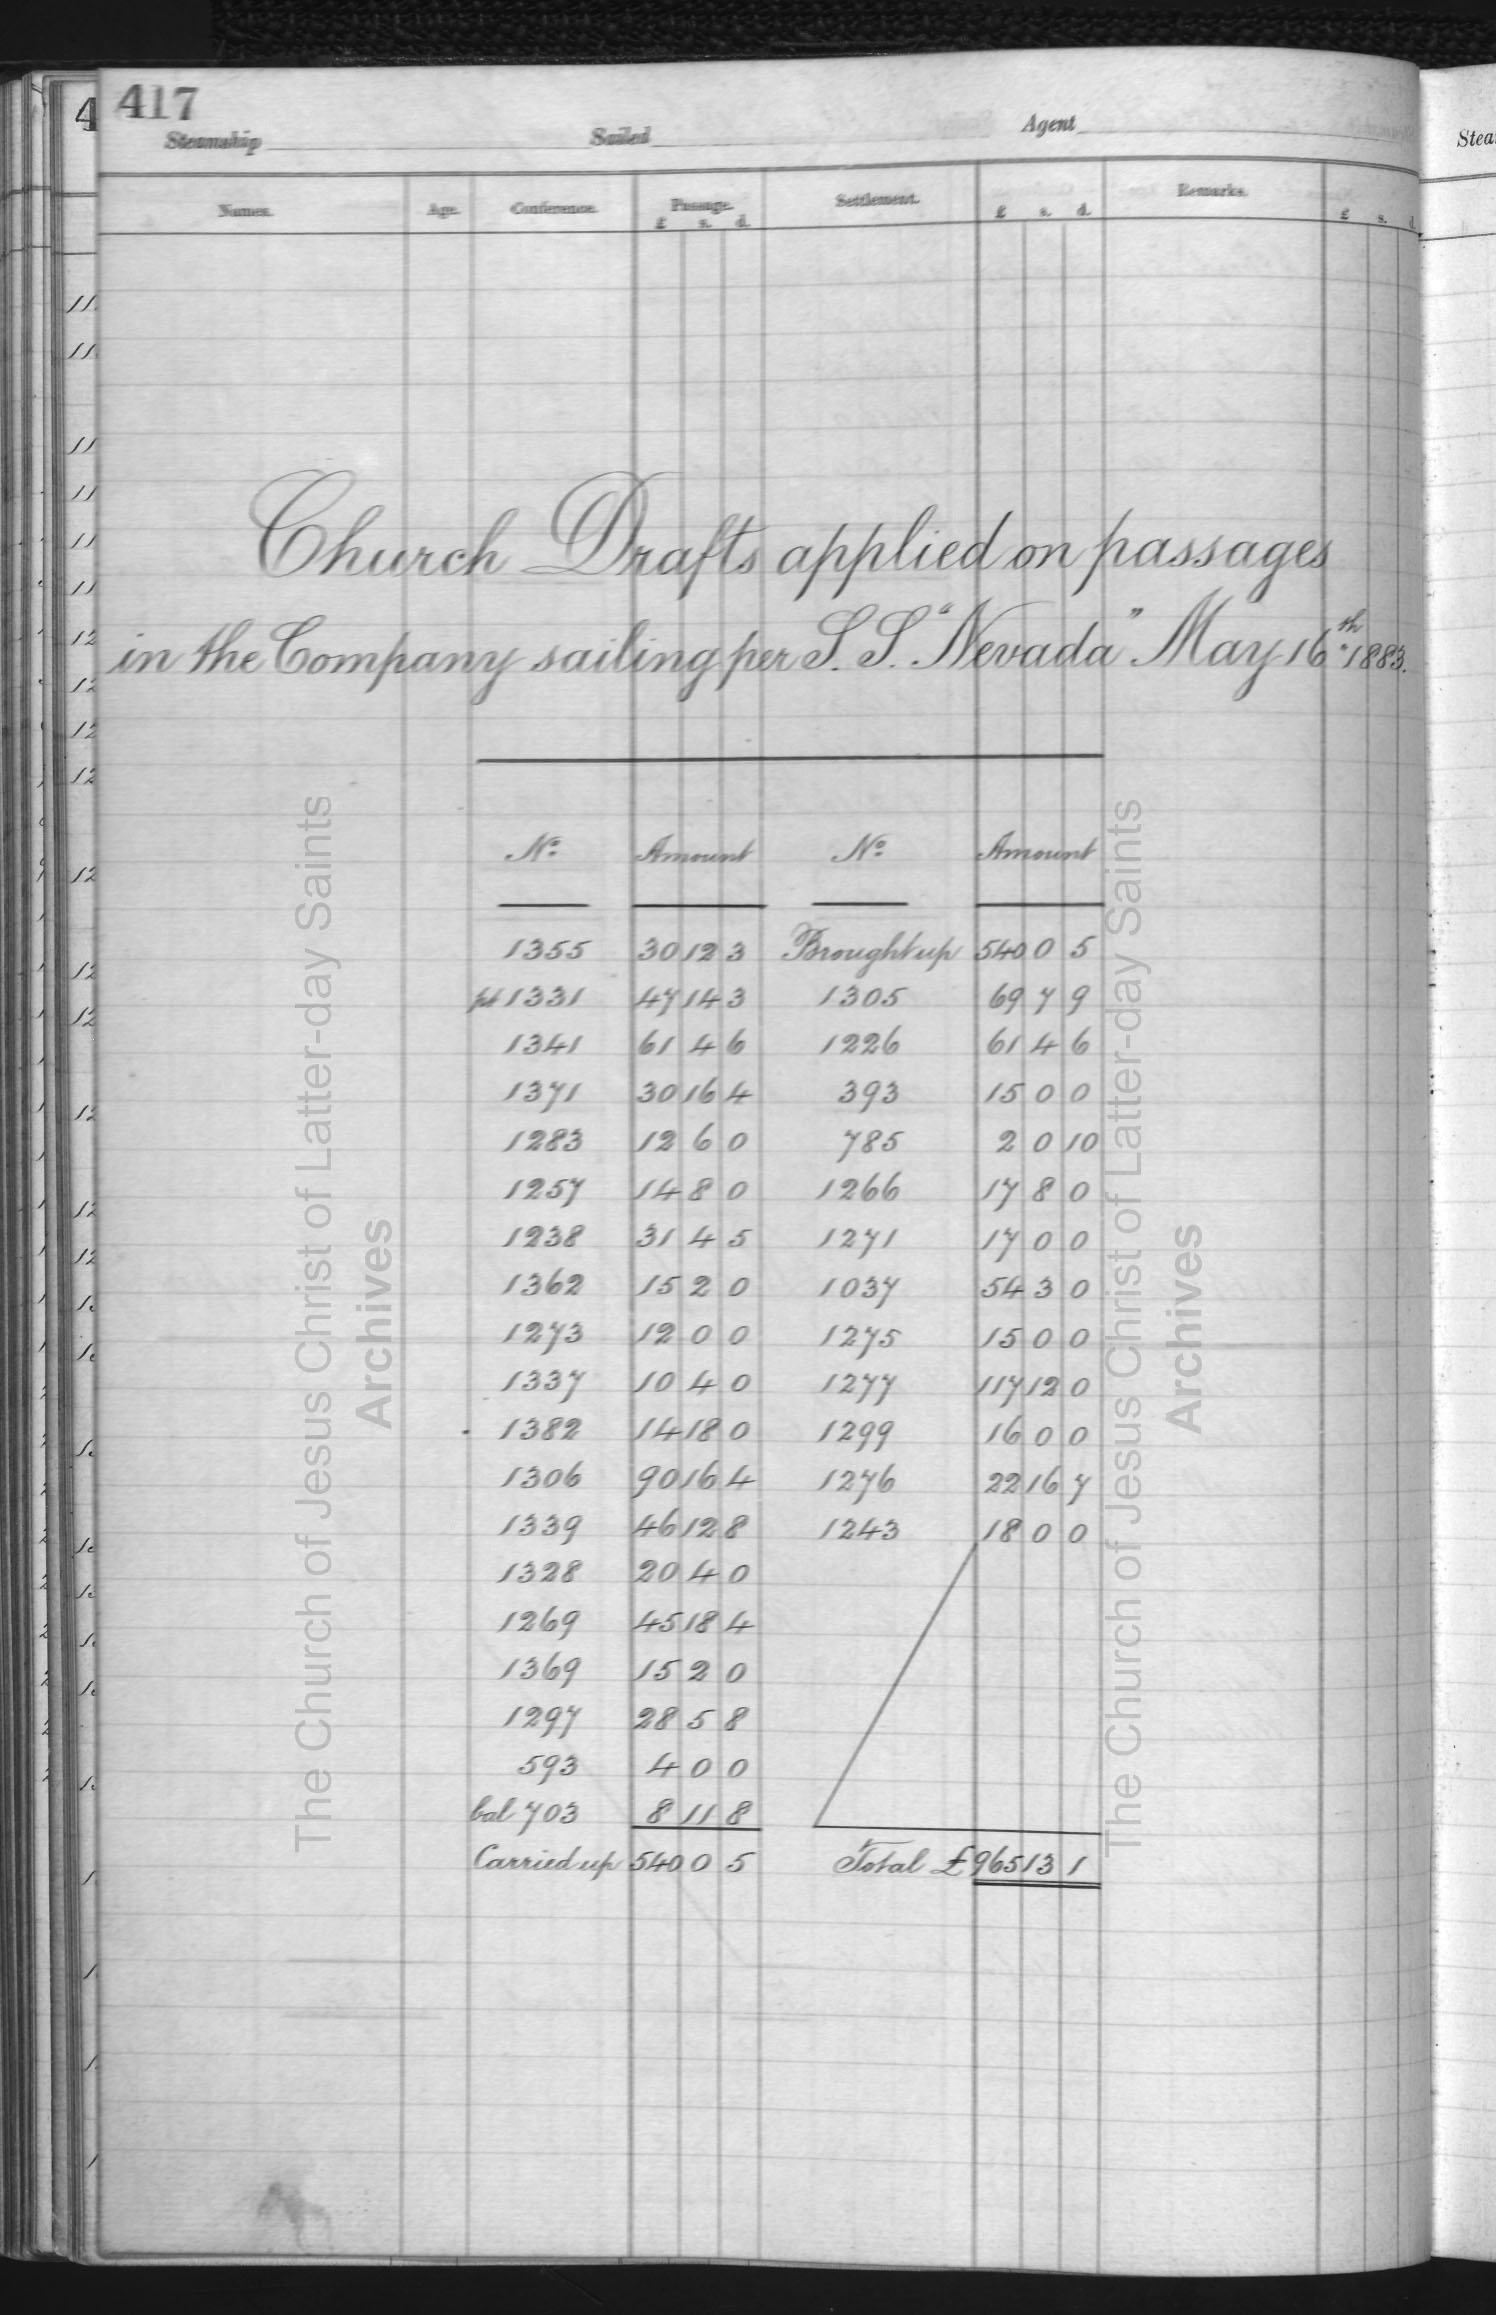 417
Steamship Sailed Agent
Names. Age. Conference. Passage. Settlement. Remarks.
£ s. d. £ s. d. £ s. d.
Church Drafts applied on passages
in the Company sailing per S. S. "Nevada" May 16th 1883.
No. Amount No. Amount
1355 30 12 3 Brought up 540 0 5
pt 1331 47 14 3 1305 69 7 9
1341 61 4 6 1226 61 4 6
1371 30 16 4 393 15 0 0
1283 12 6 0 785 2 0 10
1257 14 8 0 1266 17 8 0
1238 31 4 5 1271 17 0 0
1362 15 2 0 1037 54 3 0
1273 12 0 0 1275 15 0 0
1337 10 4 0 1277 117 12 0
1382 14 18 0 1299 16 0 0
1306 90 16 4 1276 22 16 7
1339 46 12 8 1243 18 0 0
1328 20 4 0
1269 45 18 4
1369 15 2 0
1297 28 5 8
593 4 0 0
bal 703 8 11 8
Carried up 540 0 5 Total £965 13 1
The Church of Jesus Christ of Latter-day Saints
Archives
The Church of Jesus Christ of Latter-day Saints
Archives